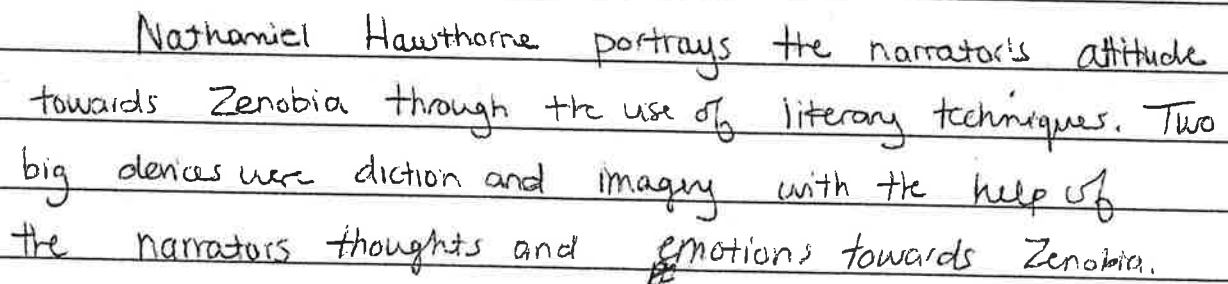 Nathaniel Hawthorne portrays the narrator's attitude
towards Zenobia through the use of literary techniques. Two
big devices were diction and imagery with the help of
the narrators thoughts and emotions towards Zenobia.